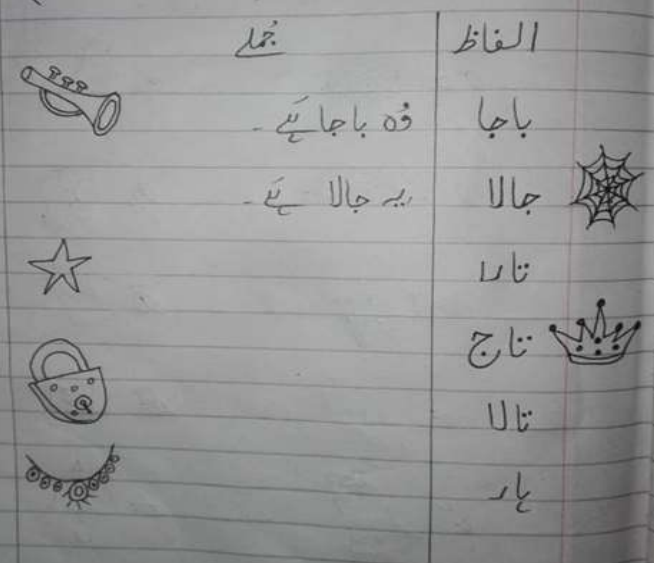 الفاظ جُملے
باجا وُہ باجا ہَے۔
جالا یہ جالا ہَے۔
تارا
تاج
تالا
ہار